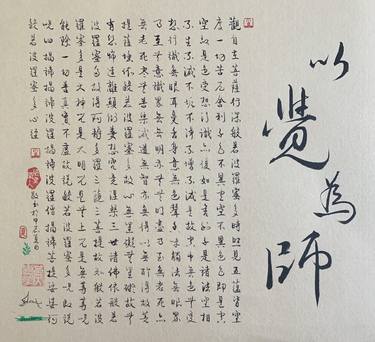 以覺為師
觀自在菩薩行深般若波羅蜜多時照見五蘊皆空
度一切苦厄舍利子色不異空空不異色色即是空
空即是色受想行識亦復如是舍利子是諸法空相
不生不滅不垢不淨不增不減是故空中無色無受
想行識無眼耳鼻舌身意無色聲香味觸法無眼界
乃至無意識界無無明亦無無明盡乃至無老死亦
無老死盡無苦集滅道無智亦無得以無所得故菩
提薩埵依般若波羅蜜多故心無罣礙無罣礙故無
有恐怖遠離顛倒夢想究竟涅槃三世諸佛依般若
波羅蜜多故得阿耨多羅三藐三菩提故知般若波
羅蜜多是大神咒是大明咒是無上咒是無等等咒
能除一切苦真實不虛故說般若波羅蜜多咒即說
咒曰揭諦揭諦波羅揭諦波羅僧揭諦菩提薩婆訶
般若波羅蜜多心經